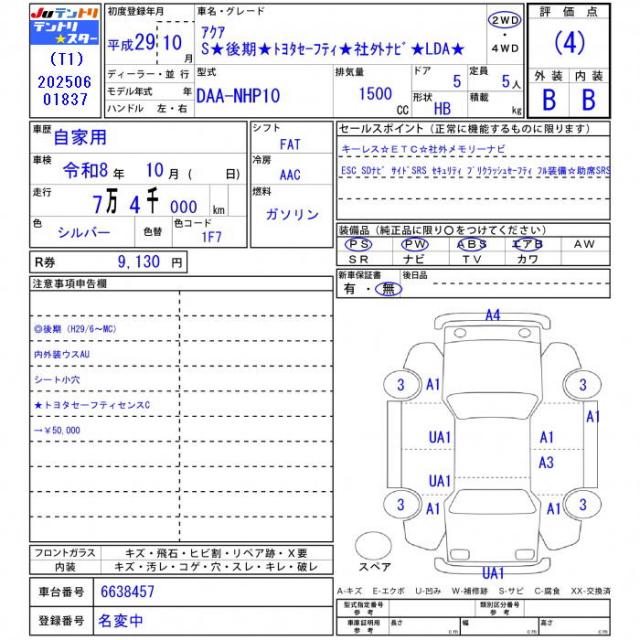 JUテントリ
テントリ
★スター
(T1)
202506
01837
初度登録年月
平成29年10月
ディーラー・並行
モデル年式 年
ハンドル 左・右
車名・グレード
アクア
S★後期★トヨタセーフティ★社外ナビ★LDA★
2WD
・
4WD
型式
DAA-NHP10
排気量
1500
CC
ドア
5
定員
5人
形状
HB
積載
kg
評価点
(4)
外装 内装
B B
車歴
自家用
車検
令和8年 10月( 日)
走行
7万 4千 000 km
色
シルバー
色替
色コード
1F7
シフト
FAT
冷房
AAC
燃料
ガソリン
R券 9,130 円
セールスポイント(正常に機能するものに限ります)
キーレス☆ETC☆社外メモリーナビ
ESC SDナビ サイドSRS セキュリティ プリクラッシュセーフティ フル装備☆助席SRS
装備品(純正品に限り○をつけてください)
PS PW ABS エアB AW
SR ナビ TV カワ
新車保証書
有・無
後日品
注意事項申告欄
◎後期 (H29/6～MC)
内外装ウスAU
シート小穴
★トヨタセーフティセンスC
→¥50,000
A4
3 A1 3
A1
UA1 A1
A3
UA1
3 A1 A1 3
スペア
UA1
フロントガラス キズ・飛石・ヒビ割・リペア跡・X要
内装 キズ・汚レ・コゲ・穴・スレ・キレ・破レ
車台番号 6638457
登録番号 名変中
A-キズ E-エクボ U-凹み W-補修跡 S-サビ C-腐食 XX-交換済
型式指定番号
参考
類別区分番号
参考
車庫証明用
参考
長さ
cm
幅
cm
高さ
cm